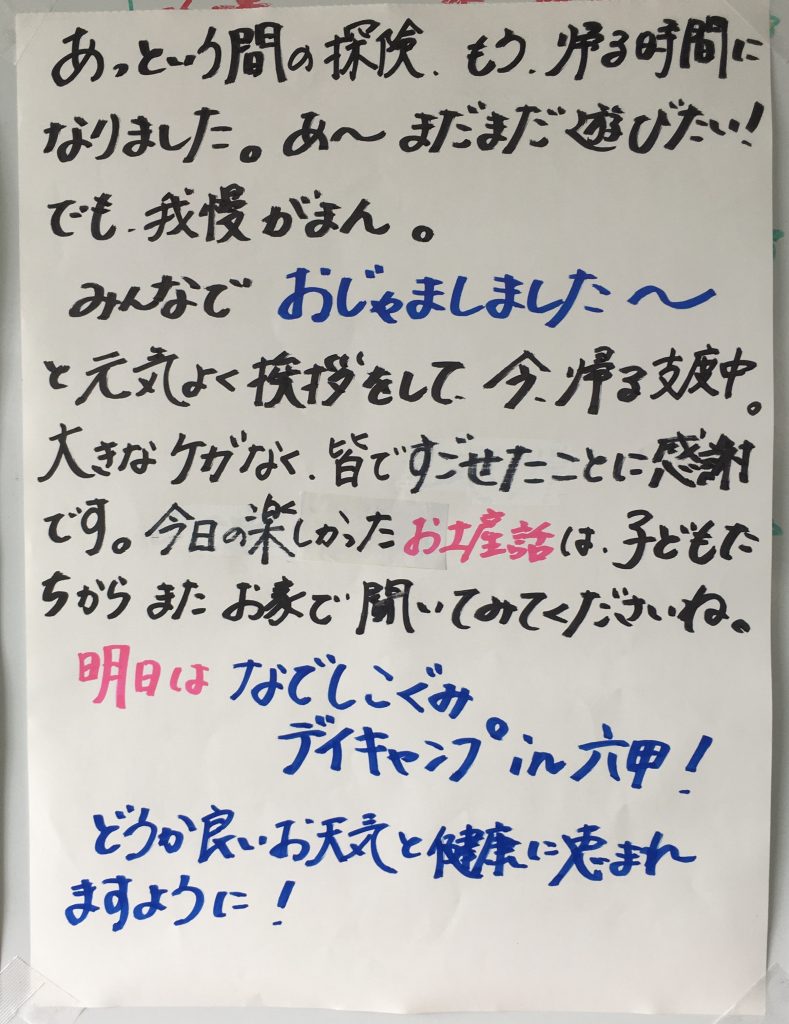 あっという間の探険、もう、帰る時間に
なりました。あ〜まだまだ遊びたい!
でも、我慢がまん。
みんなで おじゃましました〜
と元気よく挨拶をして、今、帰る支度中。
大きなケガなく、皆ですごせたことに感謝
です。今日の楽しかったお土産話は、子どもた
ちからまたお家で聞いてみてくださいね。
明日は なでしこぐみ
デイキャンプin六甲!
どうか良いお天気と健康に恵まれ
ますように!